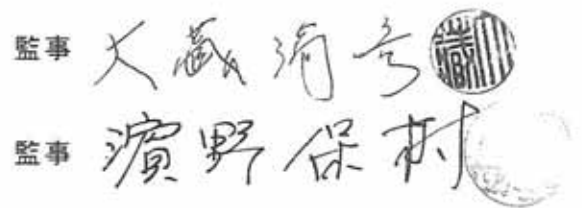 監事 大蔵満彦
監事 濱野保樹